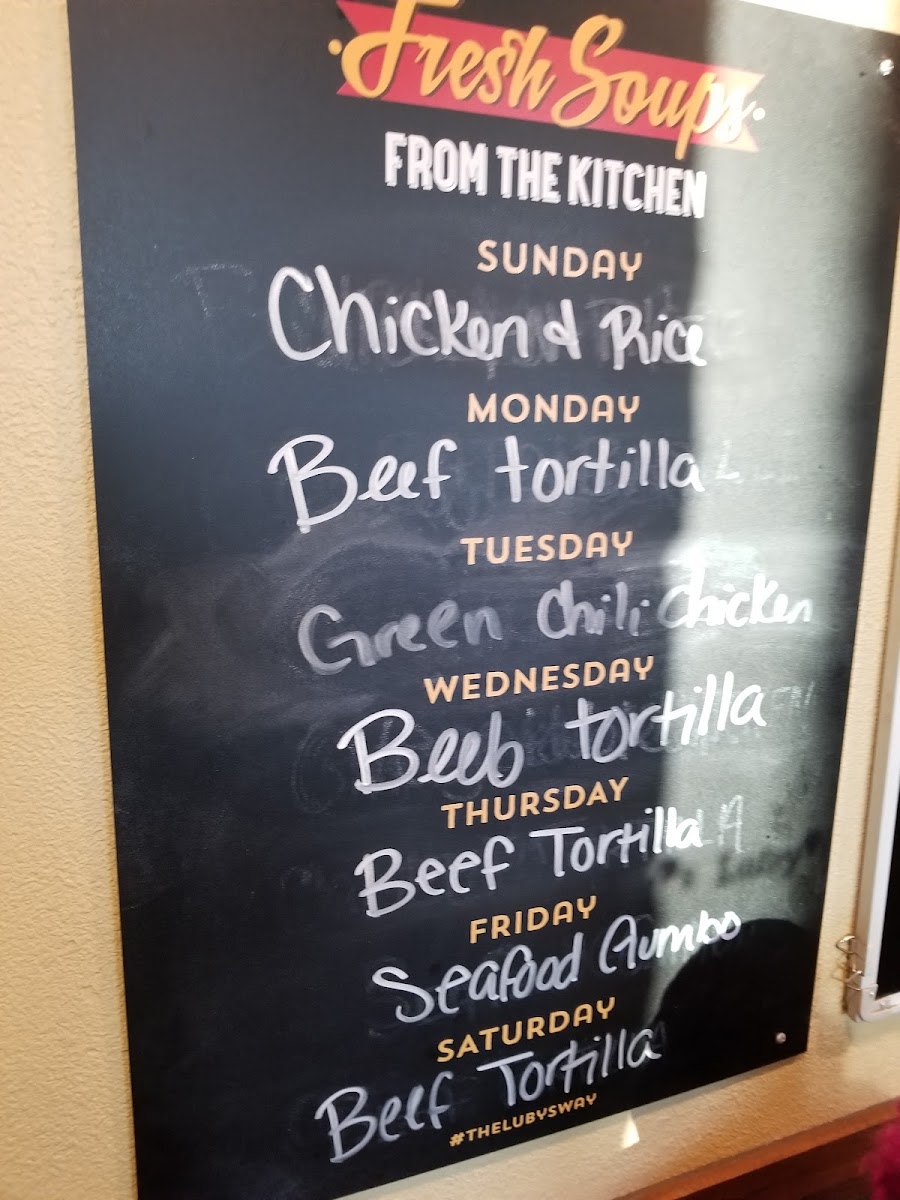 Fresh Soups
FROM THE KITCHEN
SUNDAY
Chicken & Rice
MONDAY
Beef tortilla
TUESDAY
Green Chili Chicken
WEDNESDAY
Beeb tortilla
THURSDAY
Beef Tortilla
FRIDAY
Seafood Gumbo
SATURDAY
Beef Tortilla
#THELUBYSWAY